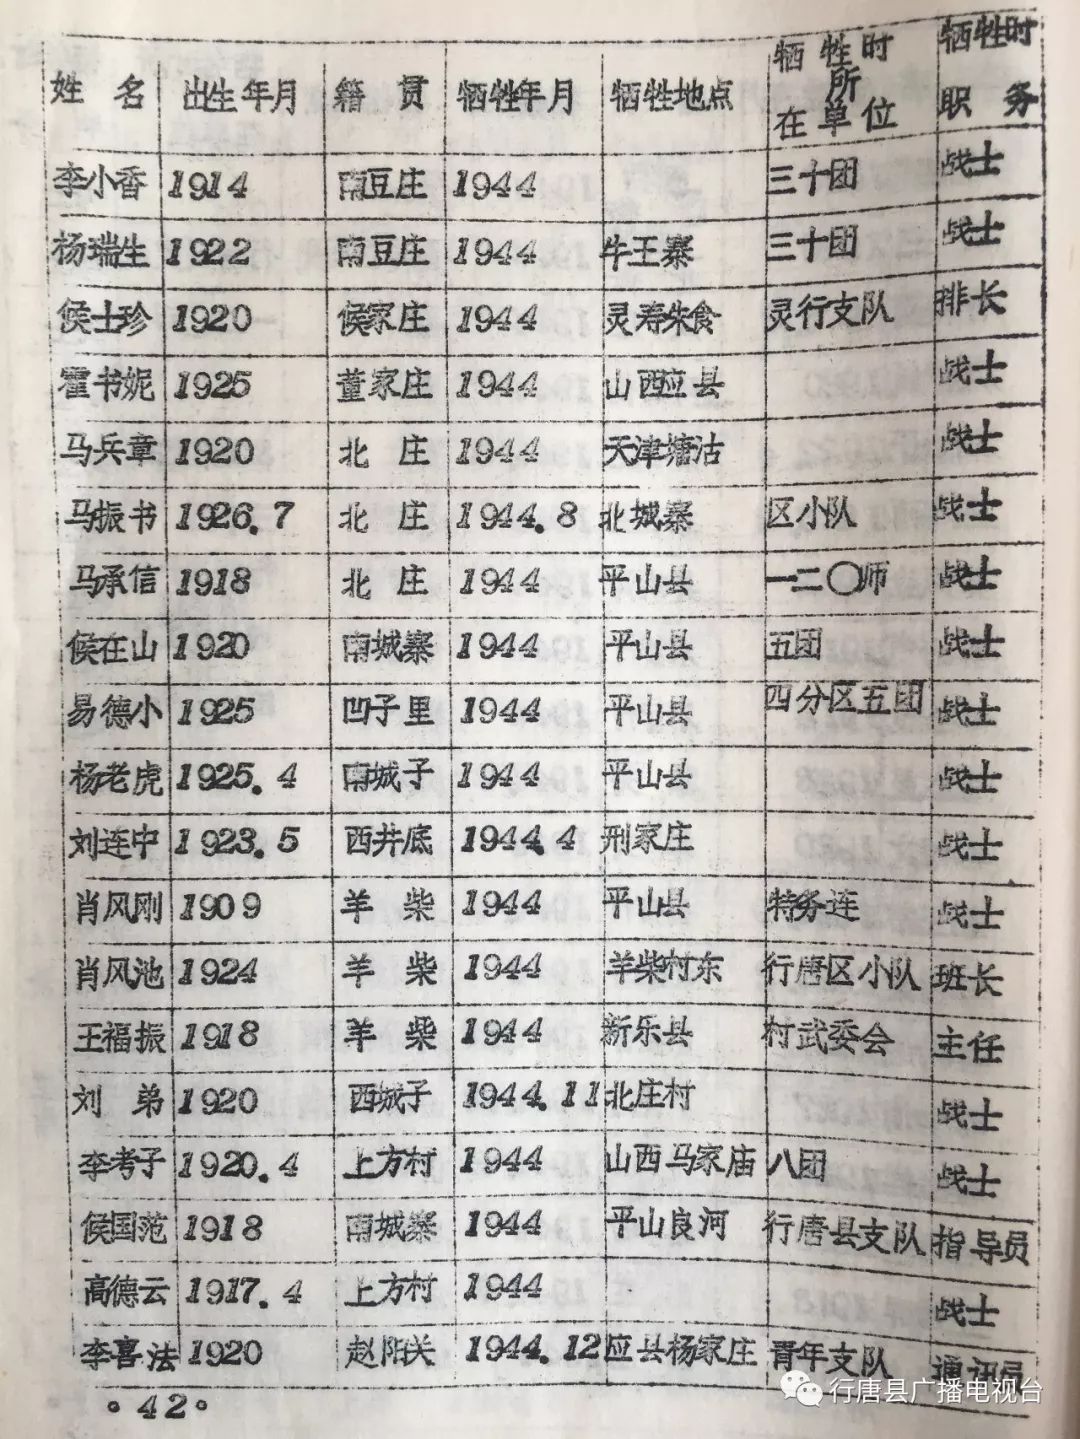 姓 名 出生年月 籍 贯 牺牲年月 牺牲地点 牺牲时所在单位 牺牲时职务
李小香 1914 南豆庄 1944 三十团 战士
杨瑞生 1922 南豆庄 1944 牛王寨 三十团 战士
侯士珍 1920 侯家庄 1944 灵寿朱食 灵行支队 排长
霍书妮 1925 董家庄 1944 山西应县 战士
马兵章 1920 北 庄 1944 天津塘沽 战士
马振书 1926.7 北 庄 1944.8 北城寨 区小队 战士
马承信 1918 北 庄 1944 平山县 一二〇师 战士
侯在山 1920 南城寨 1944 平山县 五团 战士
易德小 1925 凹子里 1944 平山县 四分区五团 战士
杨老虎 1925.4 南城子 1944 平山县 战士
刘连中 1923.5 西井底 1944.4 刑家庄 战士
肖风刚 1909 羊 柴 1944 平山县 特务连 战士
肖风池 1924 羊 柴 1944 羊柴村东 行唐区小队 班长
王福振 1918 羊 柴 1944 新乐县 村武委会 主任
刘 弟 1920 西城子 1944.11 北庄村 战士
李考子 1920.4 上方村 1944 山西马家庙 八团 战士
侯国范 1918 南城寨 1944 平山良河 行唐县支队 指导员
高德云 1917.4 上方村 1944 战士
李喜法 1920 赵阳关 1944.12 应县杨家庄 青年支队 通讯员
·42·
行唐县广播电视台